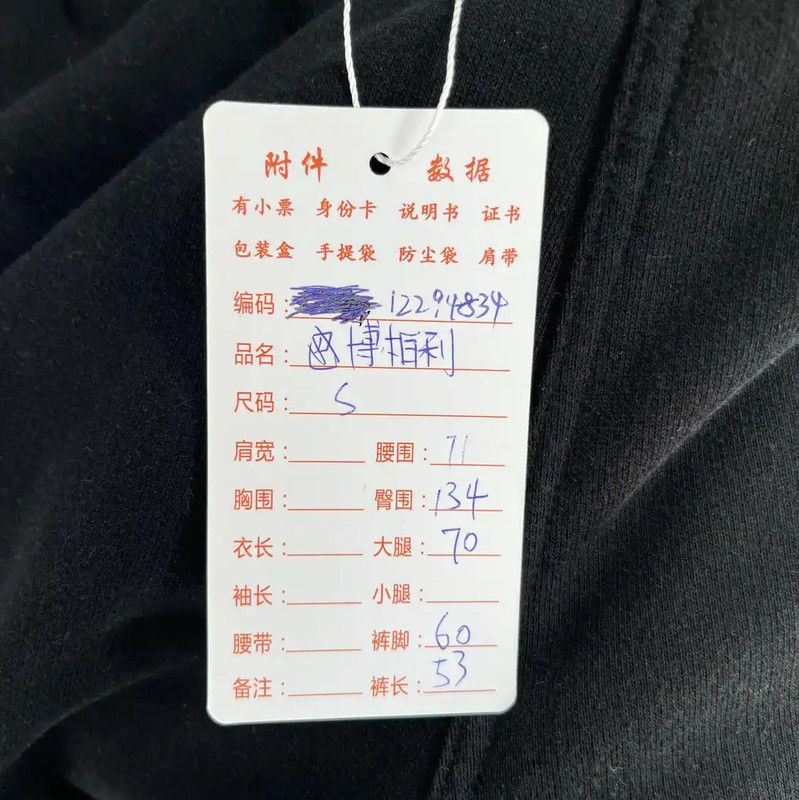 附件 数据
有小票 身份卡 说明书 证书
包装盒 手提袋 防尘袋 肩带
编码: 12294834
品名: 博柏利
尺码: S
肩宽: 腰围: 71
胸围: 臀围: 134
衣长: 大腿: 70
袖长: 小腿:
腰带: 裤脚: 60
备注: 裤长: 53